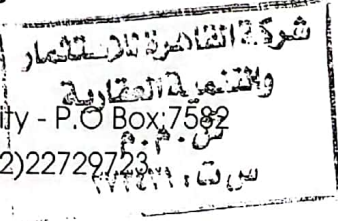 شركة القاهرة للاستثمار
والتنمية العقارية
ity - P.O Box:7582
ش.م.م
2)22729723
س ت :